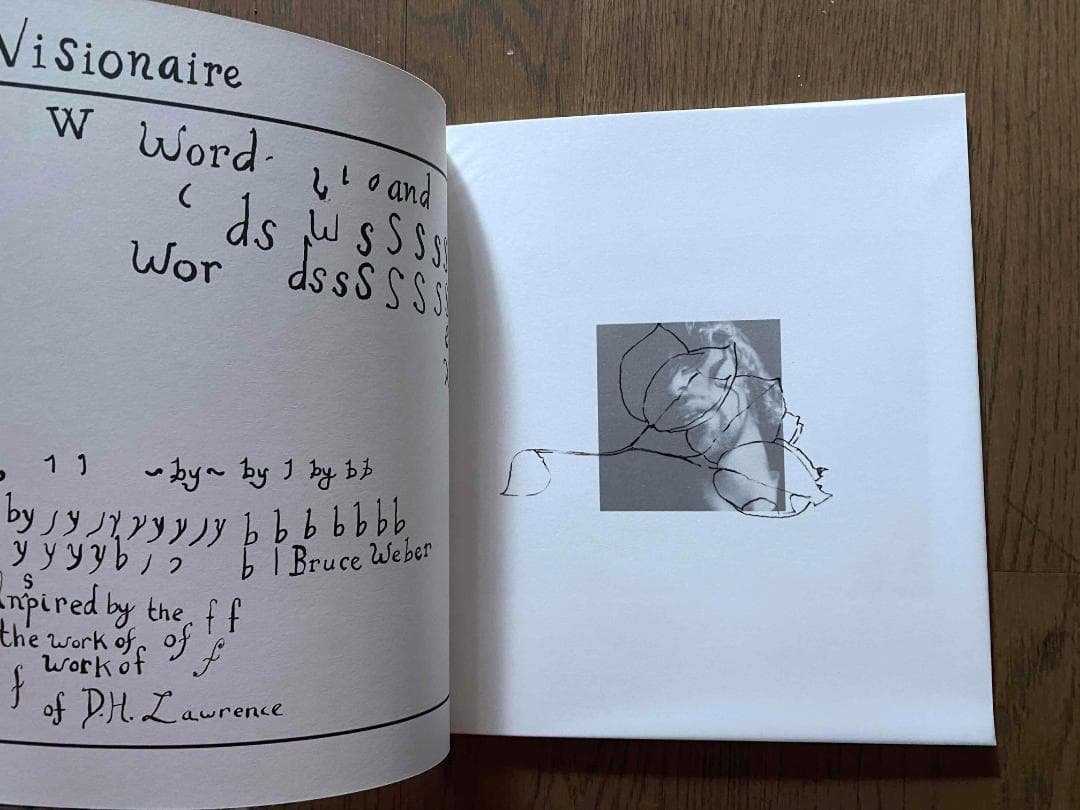 Visionaire
W Word-
and
ds W s S S S S
Wor dssS S S S
by by by b b
by y y y y y y b b b b b b b
y y y y b b Bruce Weber
s
Inpired by the f f
the work of of f
work of
f of D.H. Lawrence